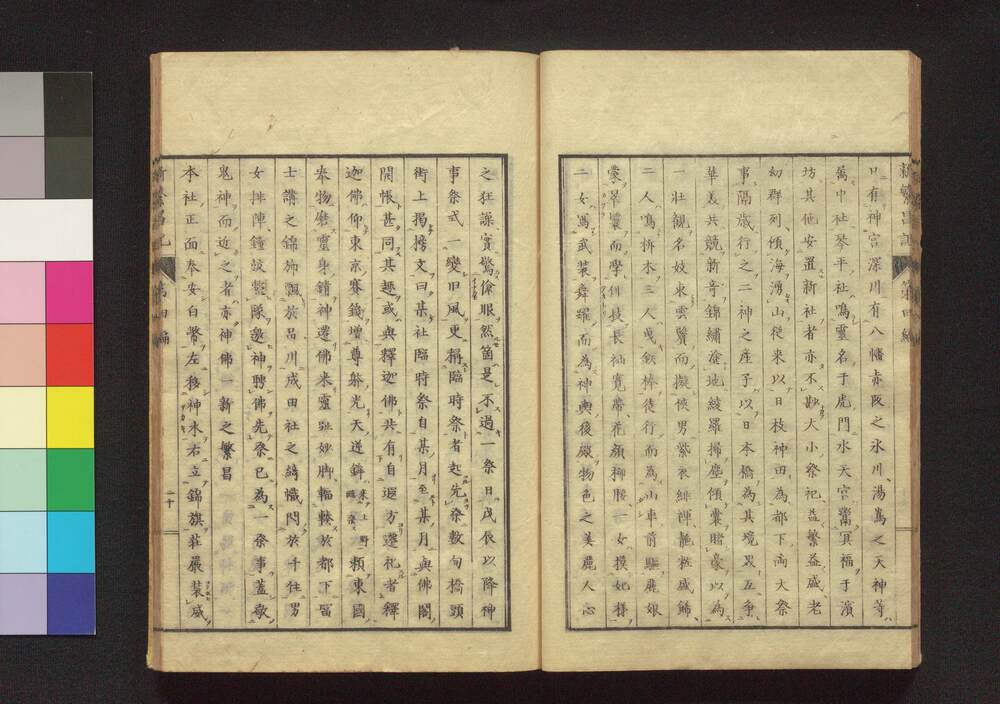 只有神宮深川有八幡赤阪之氷川湯島之天神等
萬中社琴平社鳴靈名于虎門水天宮鬻冥福于濱
坊其他安置新社者亦不尠大小祭祀益繁益盛老
幼群列傾海湧山從来以日枝神田為都下両大祭
事隔歳行之二神之産子以日本橋為其境界互争
華美共競新竒錦繡塗地綾羅掃塵傾囊賭豪以為
一壯觀名妓束雲鬟而擬俠男紫衣緋禪艷粧盛飾
二人鳴拆木三人曳鉄棒徒行而為山車前驅麗娘
褰翠裳而學俳技長袖寛帶花顔柳腰一女摸妃様
一女為武装舞躍而為神輿後嚴物色之美麗人心
之狂譟實驚傖眼然箇是不過一祭日戊辰以降神
事祭式一變旧風更稱臨時祭者起先祭數旬橋頭
街上掲榜文曰某社臨時祭自某月至某月與佛閣
開帳甚同其趣或與釋迦佛共有自遐方遷祀者釋
迦佛仰東京賽錢増尊躰光天送錦来上野頼東國
奉物磨靈身錆神遷佛来靈趾妙脚輻輳於都下冨
士講之錦斾飄於品川成田社之綺幟閃於千住男
女排陣鐘鼓整隊邀神聘佛先祭已為一祭事蓋敬
鬼神而近之者亦神佛一新之繁昌
本社正面奉安白幣左移神木右立錦旗莊嚴装威
新繁昌記
第四編
二十